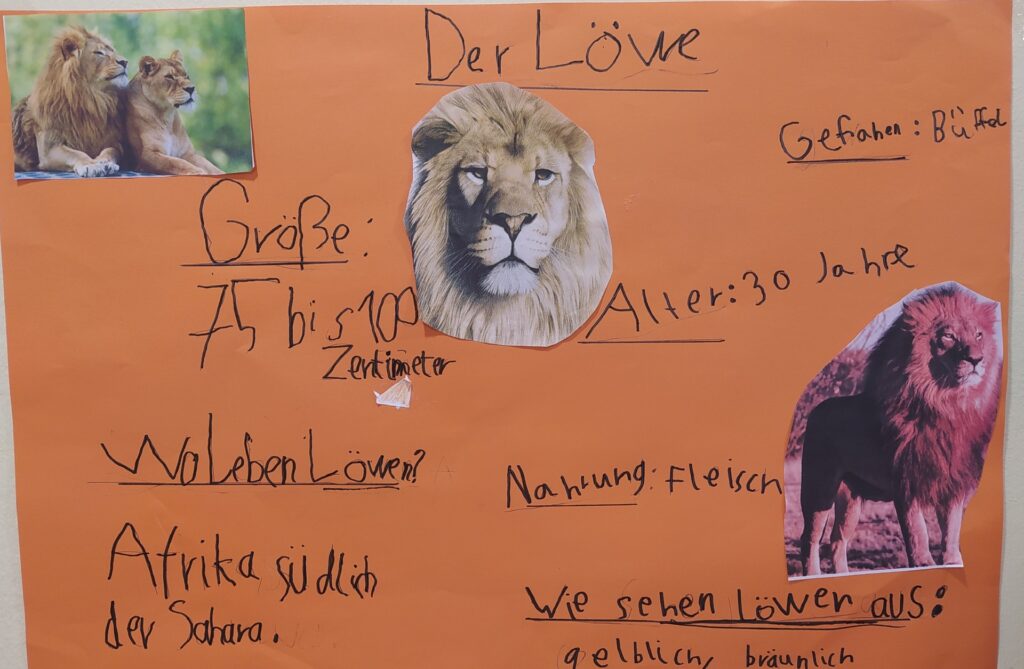 Der Löwe
Gefrahen: Büffel
Größe:
75 bis 100
Zentimeter
Alter: 30 Jahre
Wo Leben Löwen?
Afrika südlich
der Sahara.
Nahrung: Fleisch
Wie sehen Löwen aus:
gelblich, bräunlich